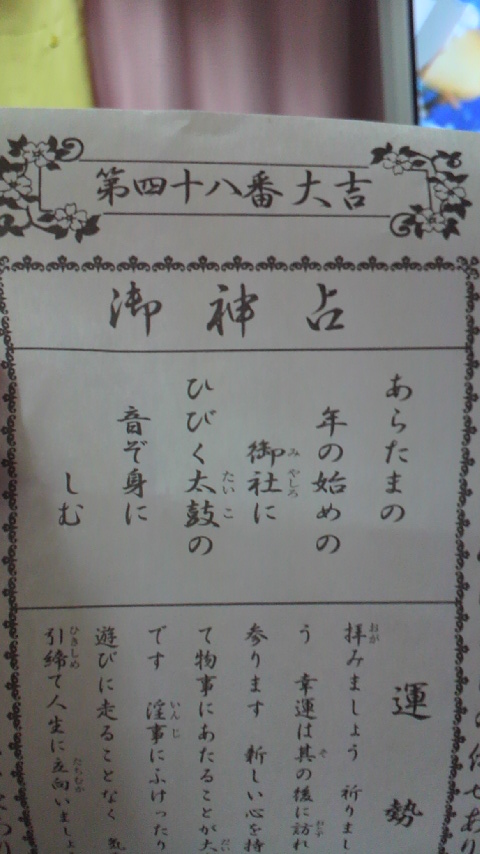 第四十八番 大吉
御神占
あらたまの
年の始めの
御社に
ひびく太鼓の
音ぞ身に
しむ
運勢
拝みましょう 祈りまし
う 幸運は其の後に訪れ
参ります 新しい心を持
て物事にあたることが大
です 淫事にふけったり
遊びに走ることなく 気
引締て人生に立向いましょ